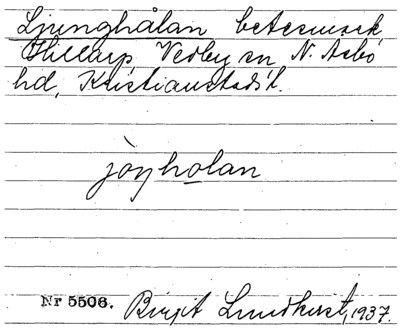 Ljunghålan betesmark
Hillarp Vedby sn N. Åsbo
hd, Kristianstads l.
jòŋholan
Nr 5506. Birgit Lundkvist, 1937.